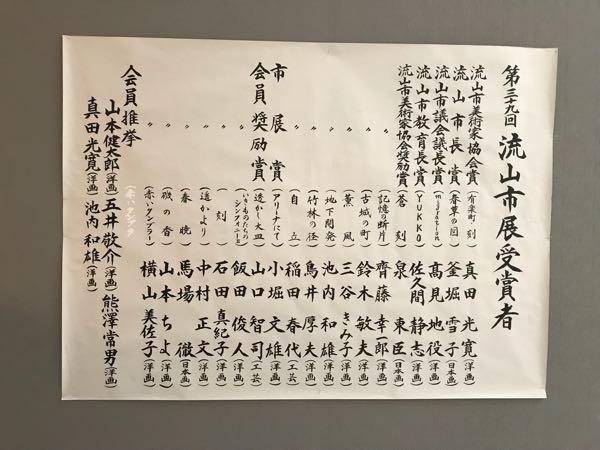 第三十九回 流山市展受賞者
流山市美術家協会賞 (有楽町 刻) 真田 光寛 (洋画)
流山市長賞 (春草の図) 釜堀 雪子 (日本画)
流山市議会議長賞 (migration) 高見 地役 (洋画)
流山市教育長賞 (YUKKO) 佐久間 静志 (洋画)
流山市美術家協会奨励賞 (蒼刻) 泉 東臣 (日本画)
〃 (記憶の断片) 齊藤 幸一郎 (洋画)
〃 (古城の町) 鈴木 敏夫 (洋画)
〃 (薫風) 三谷 きみ子 (洋画)
〃 (地下開発) 池内 和雄 (洋画)
〃 (竹林の径) 鳥井 厚夫 (洋画)
〃 (自立) 稲田 春代 (工芸)
市展賞 (アリーナにて) 小堀 文雄 (洋画)
会員奨励賞 (透かし大皿) 山口 智司 (工芸)
〃 (いきものたちのシンフォニーⅡ) 飯田 俊人 (洋画)
〃 (刻) 石田 真紀子 (洋画)
〃 (遥かより) 中村 正文 (洋画)
〃 (春暁) 馬場 徹 (日本画)
〃 (磯の香) 山本 ちよ (洋画)
〃 (赤いタンブラー) 横山 美佐子 (洋画)
会員推挙
山本健太郎(洋画) 五井敬介(洋画) 熊澤常男(洋画)
真田光寛(洋画) 池内和雄(洋画)